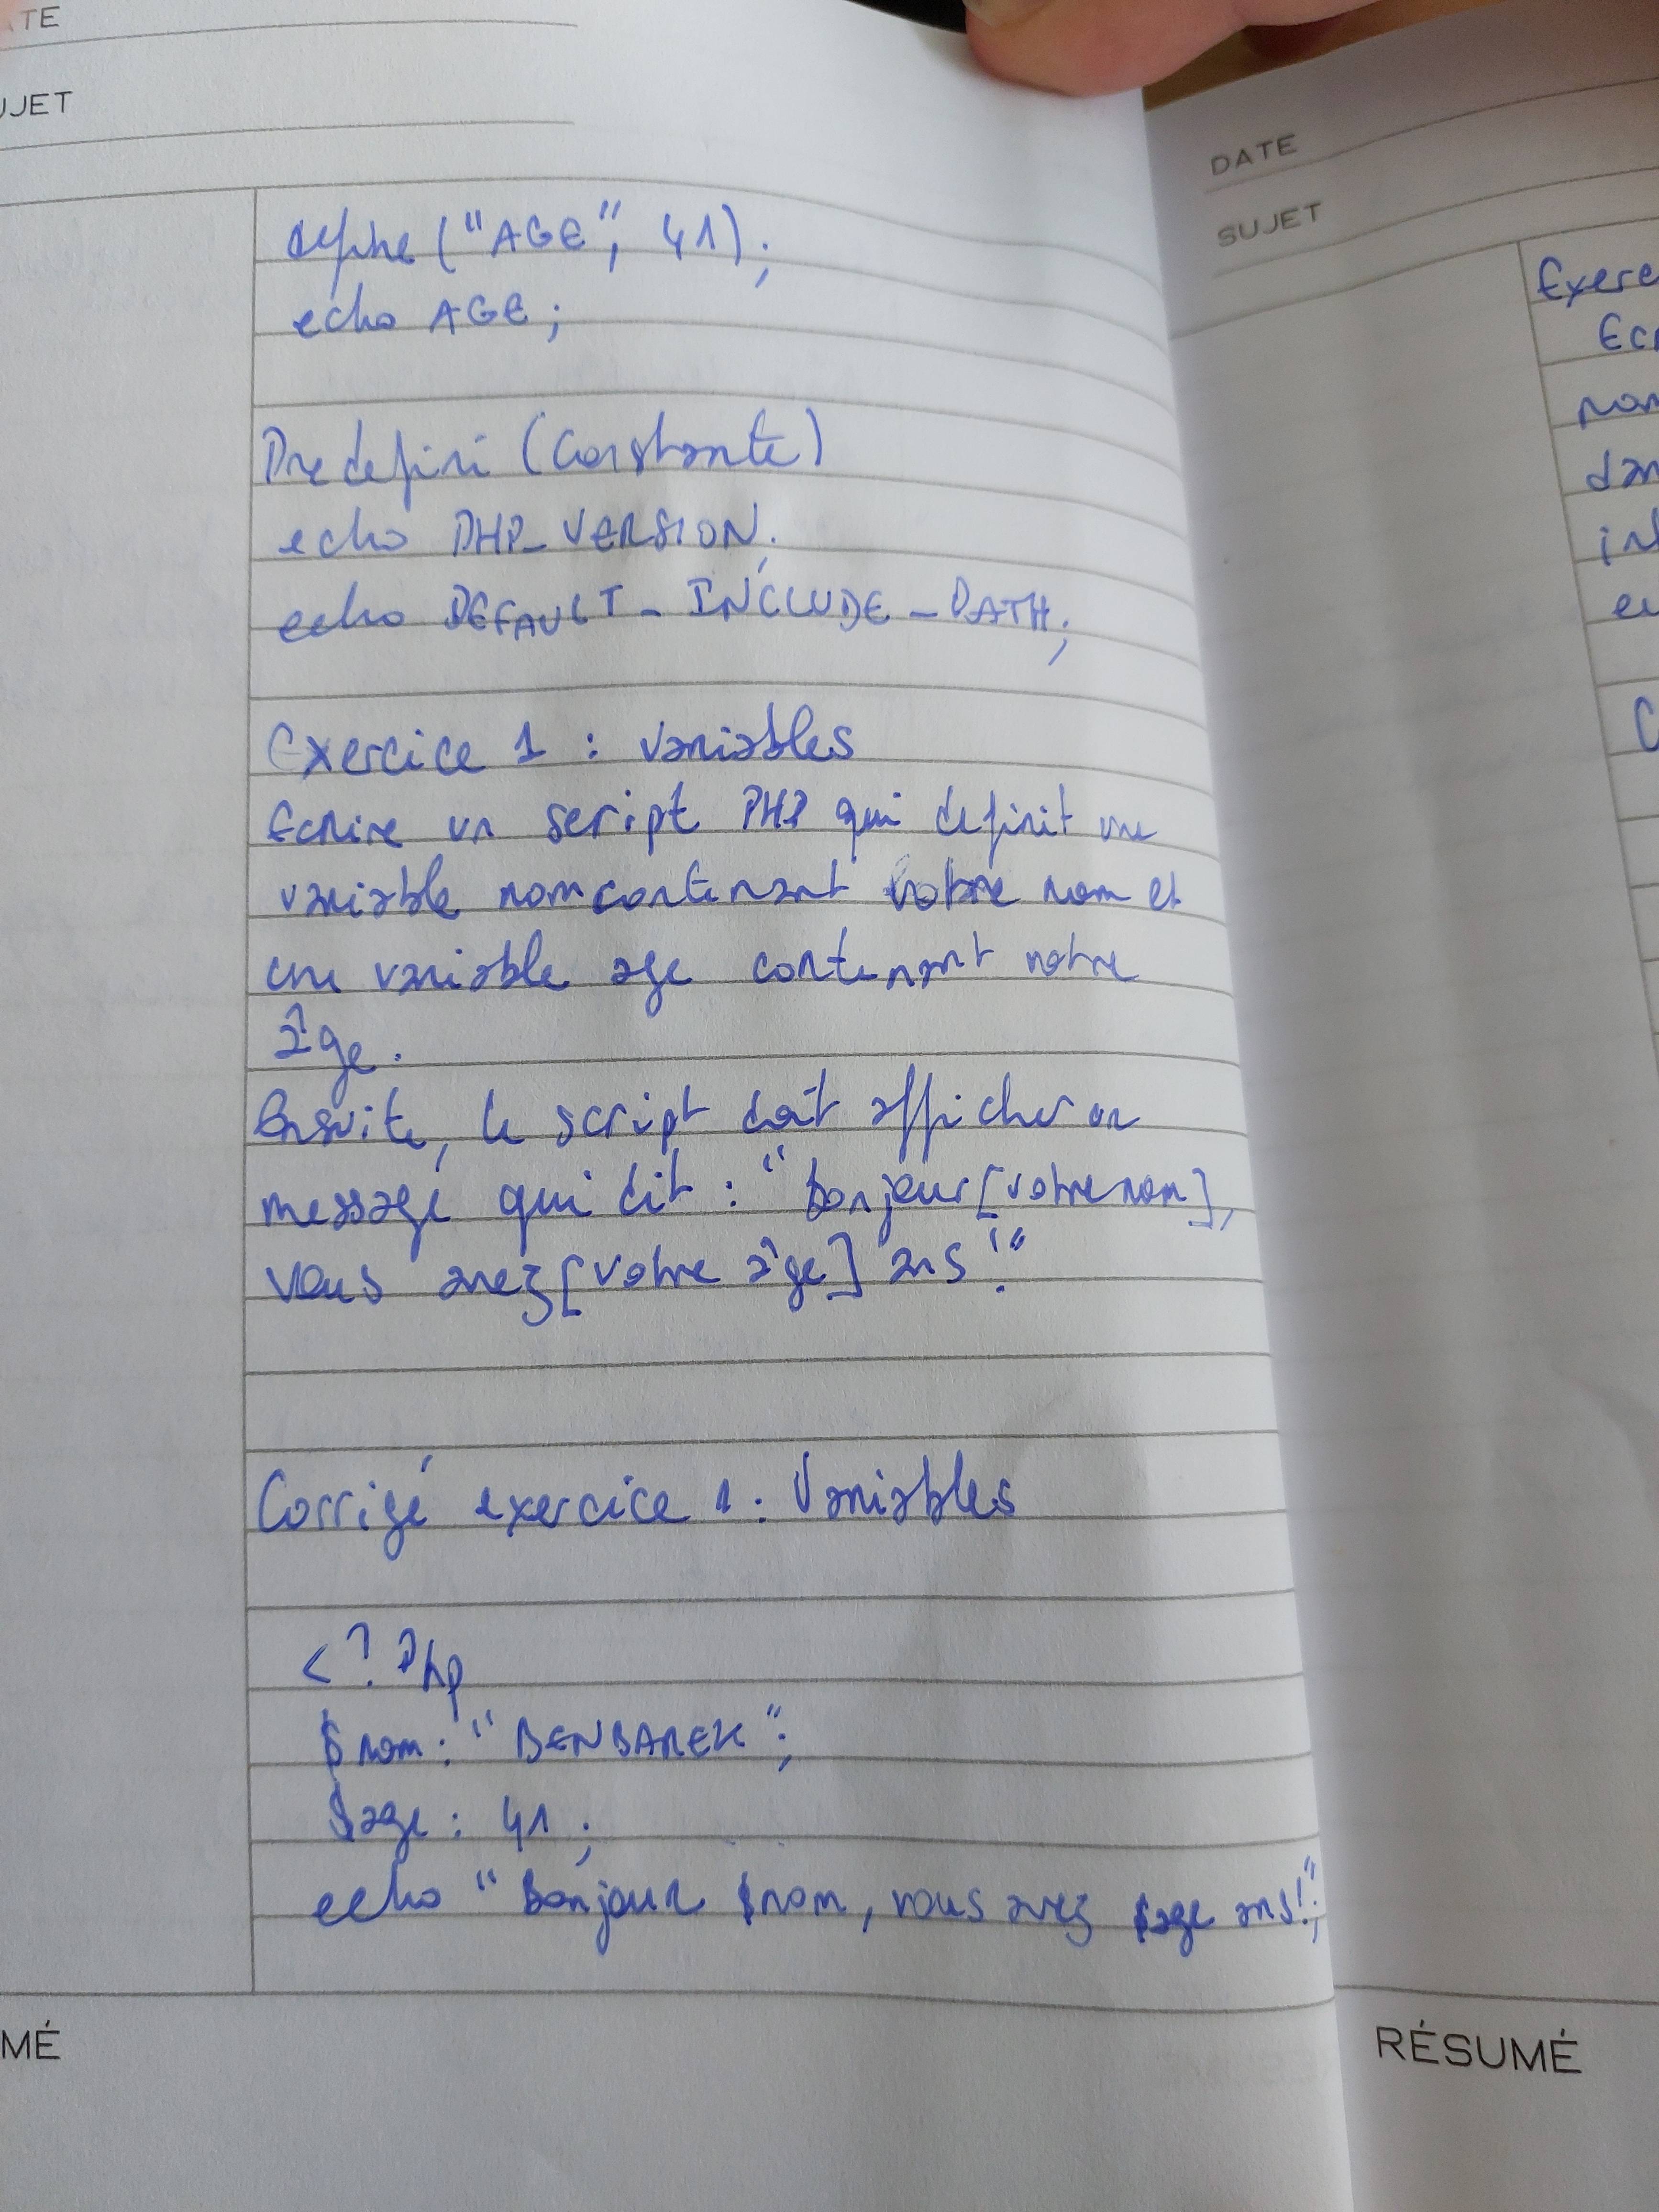 ATE
UJET
define ("AGE", 41);
echo AGE ;
Predefini (Constante)
echo PHP_VERSION;
echo DEFAULT_INCLUDE_PATH;
Exercice 1 : variables
Ecrire un script PHP qui definit une
variable nom contenant votre nom et
une variable age contenant notre
âge.
Ensuite, le script doit afficher un
message qui dit : "bonjour [votre nom],
vous avez [votre âge] ans !"
Corrigé exercice 1 : Variables
<? Php
$nom : "BENBAREK";
$age : 41 ;
echo "Bonjour $nom, vous avez $age ans!";
MÉ
DATE
SUJET
Exerc
Ecr
nom
dan
int
RÉSUMÉ